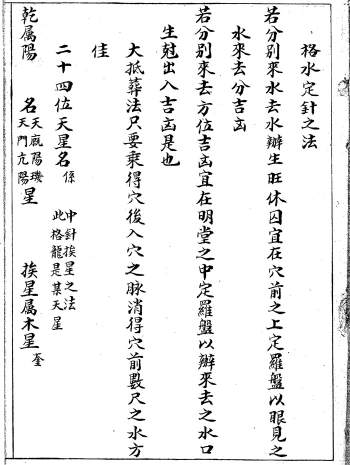 格水定針之法
若分別來水去水辦生旺休囚宜在穴前之上定羅盤以眼見之
水來去分吉凶
若分別來去方位吉凶宜在明堂之中定羅盤以辦來去之水口
生尅出入吉凶是也
大抵葬法只要乘得穴後入穴之脉消得穴前數尺之水方
佳
二十四位天星名 係 中針挨星之法 此格龍是某天星
乾属陽 名 天厩陽璣 天門亢陽 星 挨星属木星 奎